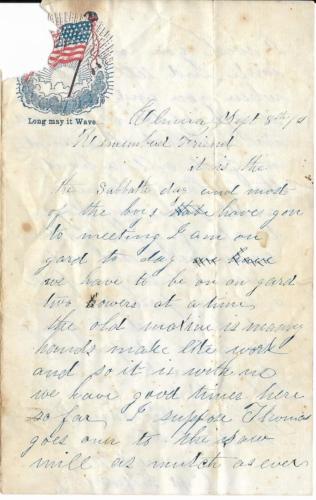 Long may it Wave.
Elmira Sept 8th
Remembered Friend
it is the
the Sabbath day and most
of the boys have gon
to meeting I am on
gard to day
we have to be on on gard
two howers at a time
the old is many
hands make lite work
and so it is with us
we have good times here
so far I suppose Thomas
goes over to the Saw
mill as mutch as ever